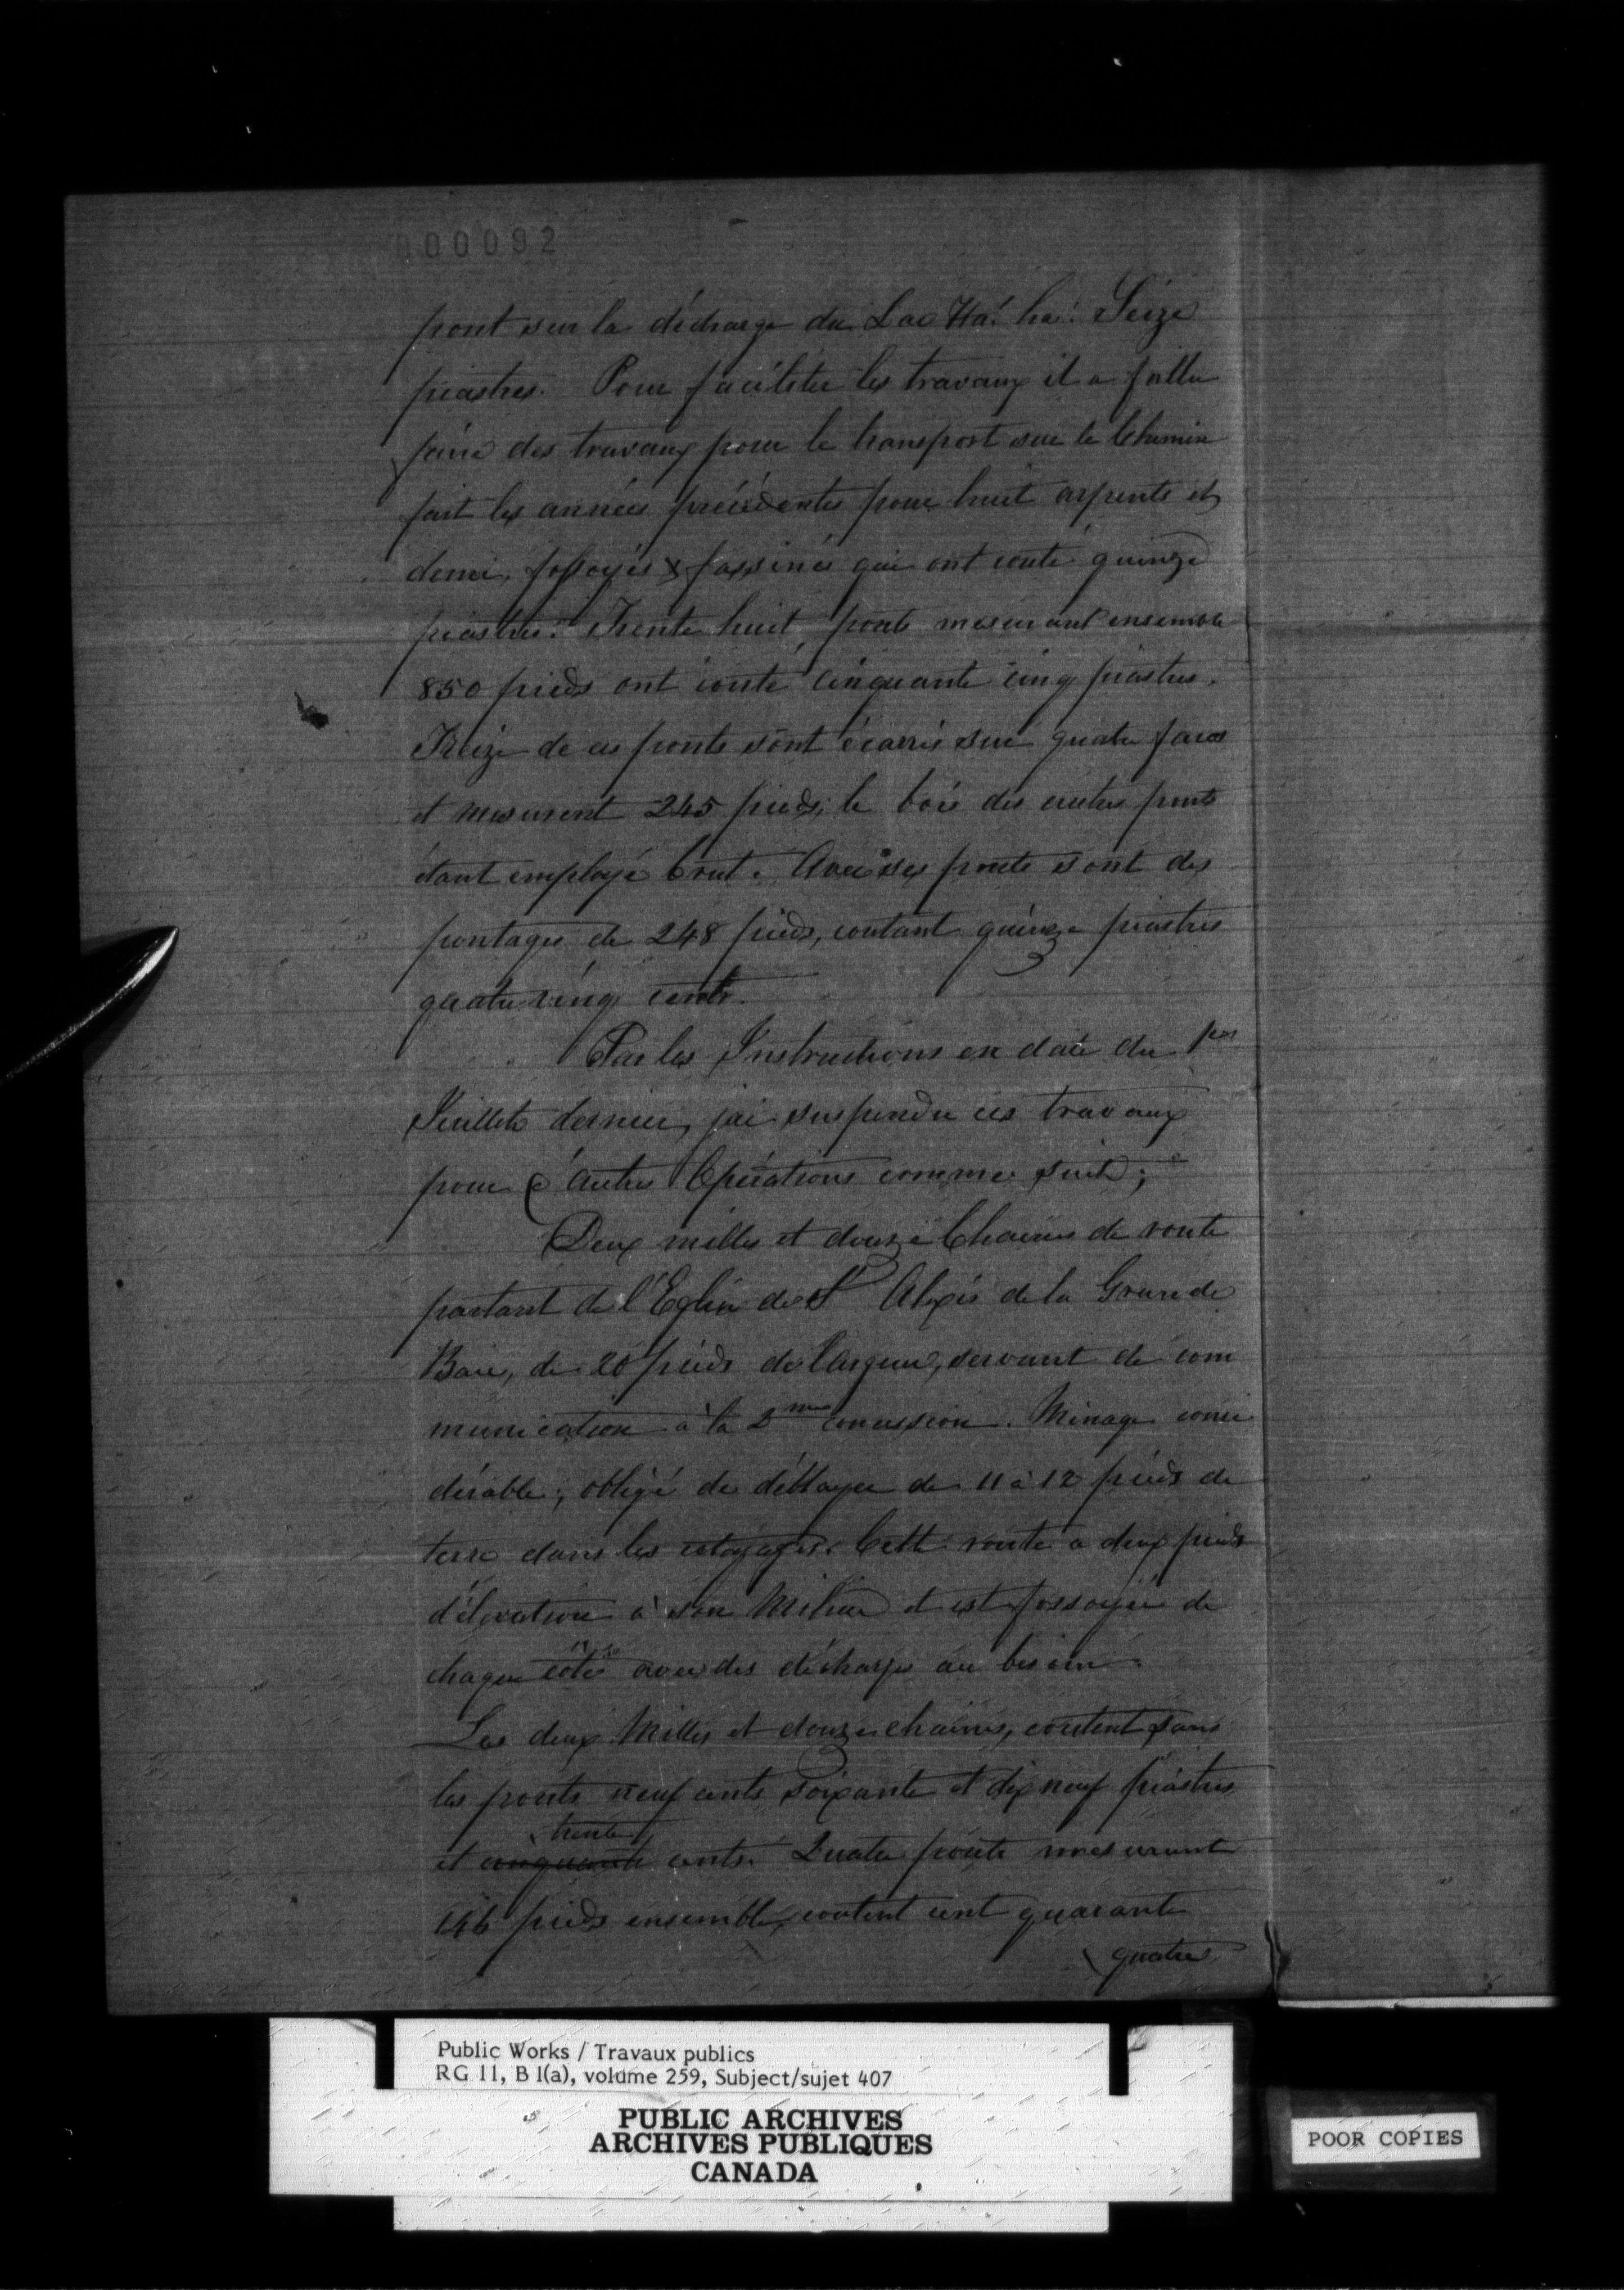 000092
pont sur la décharge du Lac Ha! ha! Seize
piastres. Pour faciliter les travaux il a fallu
faire des travaux pour le transport sur le Chemin
fait les années précédentes pour huit arpents et
demi, fossoyés & fassinés qui ont couté quinze
piastres. Trente huit ponts mesurant ensemble
850 pieds ont couté cinquante cinq piastres.
Treize de ces ponts sont écarris sur quatre faces
et mesurent 245 pieds; le bois des autres ponts
étant employé brut. Avec ses ponts sont des
pontages de 248 pieds, coutant quinze piastres
quatre vingt cents.
Par les Instructions en date du 1er
Juillet dernier, jai suspendu ces travaux
pour d'autres Opérations comme suit;
Deux milles et douze Chaines de route
partant de l'Eglise de St Alexis de la Grande
Baie, de 20 pieds de largeur, servant de com
munication à la 2me concession. Minage consi
dérable; obligé de déblayer de 11 à 12 pieds de
terre dans les cotoyages. Cette route a deux pieds
d'élevation à son Milieu et est fossoyée de
chaque côtés avec des décharges au besoin.
Les deux Milles et douze chaines, coutent sans
les ponts neuf cents soixante et dix neuf piastres
trente
et cinquante cents. Quatre ponts mesurant
146 pieds ensemble, coutent cent quarante
quatre
Public Works / Travaux publics
RG 11, B 1(a), volume 259, Subject/sujet 407
PUBLIC ARCHIVES
ARCHIVES PUBLIQUES
CANADA
POOR COPIES